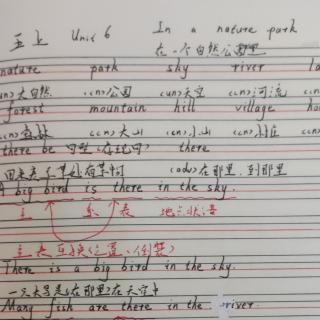 五上 Unit 6 In a nature park
在一个自然公园里
nature park sky river la
(un)大自然 (cn)公园 (un)天空 (cn)河流
forest mountain hill village ho
(cn)森林 (cn)大山 (cn)小山 (cn)村庄
there be 句型(存现句) there
用来表示某处有某物 (adv)在那里,到那里
A big bird is there in the sky.
主 系 表 地点状语
主表互换(位置、倒装)
There is a big bird in the sky.
一只大鸟是(在那里)在天空中
Many fish are there in the river.